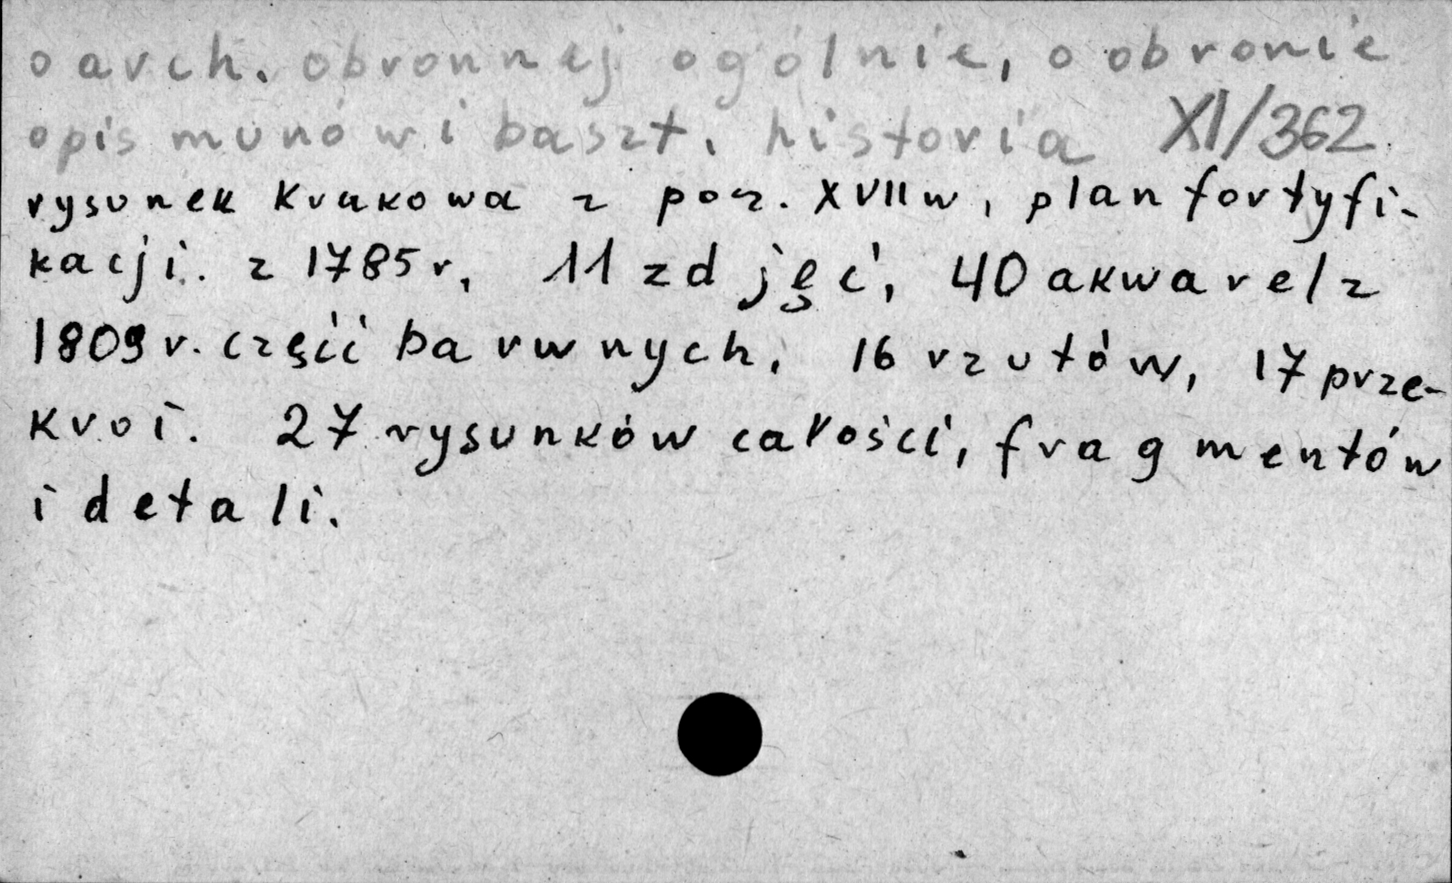 o arch. obronnej ogólnie, o obronie
opis murów i baszt. historia XI/362
rysunek Krakowa z pocz. XVII w, plan fortyfi-
kacji. z 1785 r, 11 zdjęć, 40 akwarel z
1809 r. część barwnych. 16 rzutów, 17 prze-
kroi. 27 rysunków całości, fragmentów
i detali.